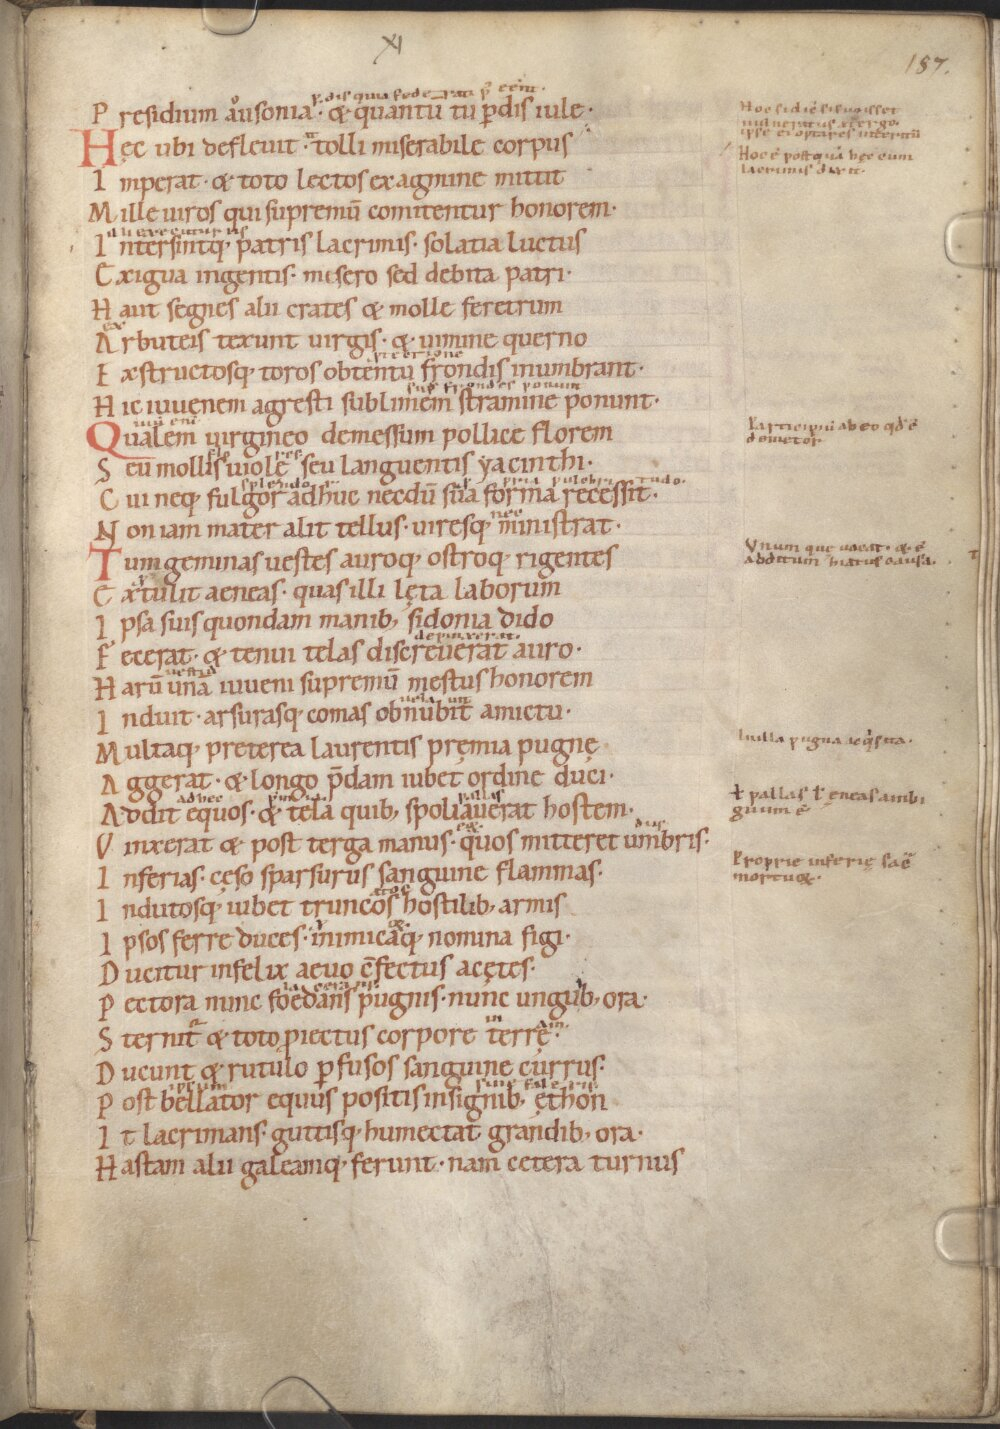 XI
187.
Presidium ausonia· & quantū tu ꝑdis iule·
Hęc ubi defleuit· tolli miserabile corpus
Imperat· & toto lectos ex agmine mittit
Mille uiros qui supremū comitentur honorem·
Intersintq; patris lacrimis· solatia luctus
Exigua ingentis· misero sed debita patri·
Haut segnes alii crates & molle feretrum
Arbuteis texunt uirgis· & uimine querno
Exstructosq; toros obtentu frondis inumbrant·
Hic iuuenem agresti sublimem stramine ponunt·
Qualem uirgineo demessum pollice florem
Seu mollis uiolę seu languentis yacinthi·
Cui neq; fulgor adhuc necdū sua forma recessit·
Non iam mater alit tellus· uiresq; ministrat·
Tum geminas uestes auroq; ostroq; rigentes
Extulit aeneas· quas illi lęta laborum
Ipsa suis quondam manib; sidonia dido
Fecerat· & tenui telas discreuerat auro·
Harū unā iuueni supremū mestus honorem
Induit· arsurasq; comas obnubit amictu·
Multaq; preterea laurentis pręmia pugnę
Aggerat· & longo p̄dam iubet ordine duci·
Addit equos· & tela quib; spoliauerat hostem·
Vinxerat & post terga manus· quos mitteret umbris·
Inferias· cęso sparsurus sanguine flammas·
Indutosq; iubet truncos hostilib; armis
Ipsos ferre duces· inimicaq; nomina figi·
Ducitur infelix aeuo cōfectus acętes·
Pectora nunc foedans pugnis· nunc unguib; ora·
Sternit & toto proiectus corpore terrę·
Ducunt & rutulo ꝑfusos sanguine currus·
Post bellator equus positis insignib; ęthon
It lacrimans· guttisq; humectat grandib; ora·
Hastam alii galeamq; ferunt· nam cetera turnus
Hoc ē postquā hęc cum
lacrimis dixit·
Participiū ab eo qd̄ ē
demetor
Vnum que uacat· & ē
additum hiatus causa·
Illa pugna acq̇sita·
ł pallas ł ęneas ambi
guum ē
Proprie inferię sac̄
mortuoꝝ·